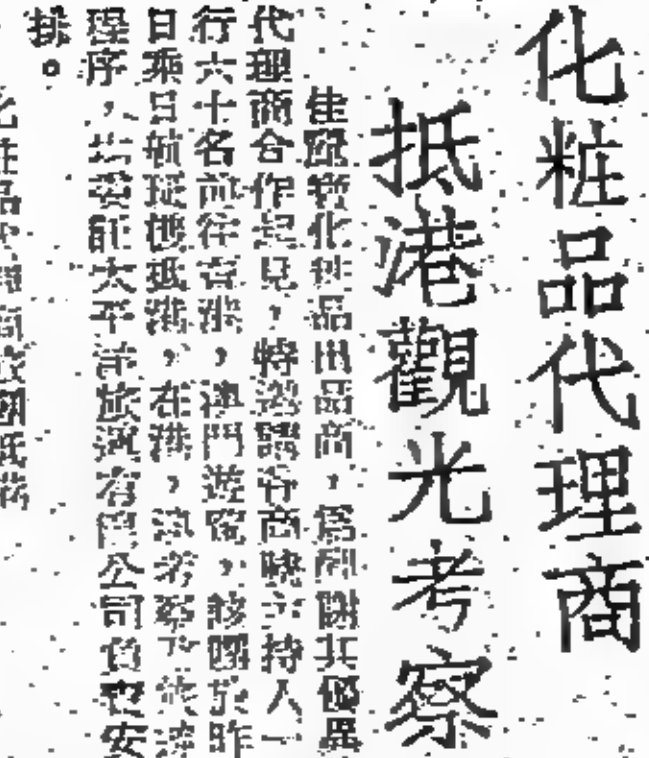 化粧品代理商
抵港觀光考察
佳麗寶化粧品出品商，爲酬謝其優異
代理商合作起見，特邀請各商號主持人一
行六十名前往香港，澳門遊覽，該團於昨
日乘日航班機抵港，在港，
程序，均委託太平洋旅運有限公司負責安
排。